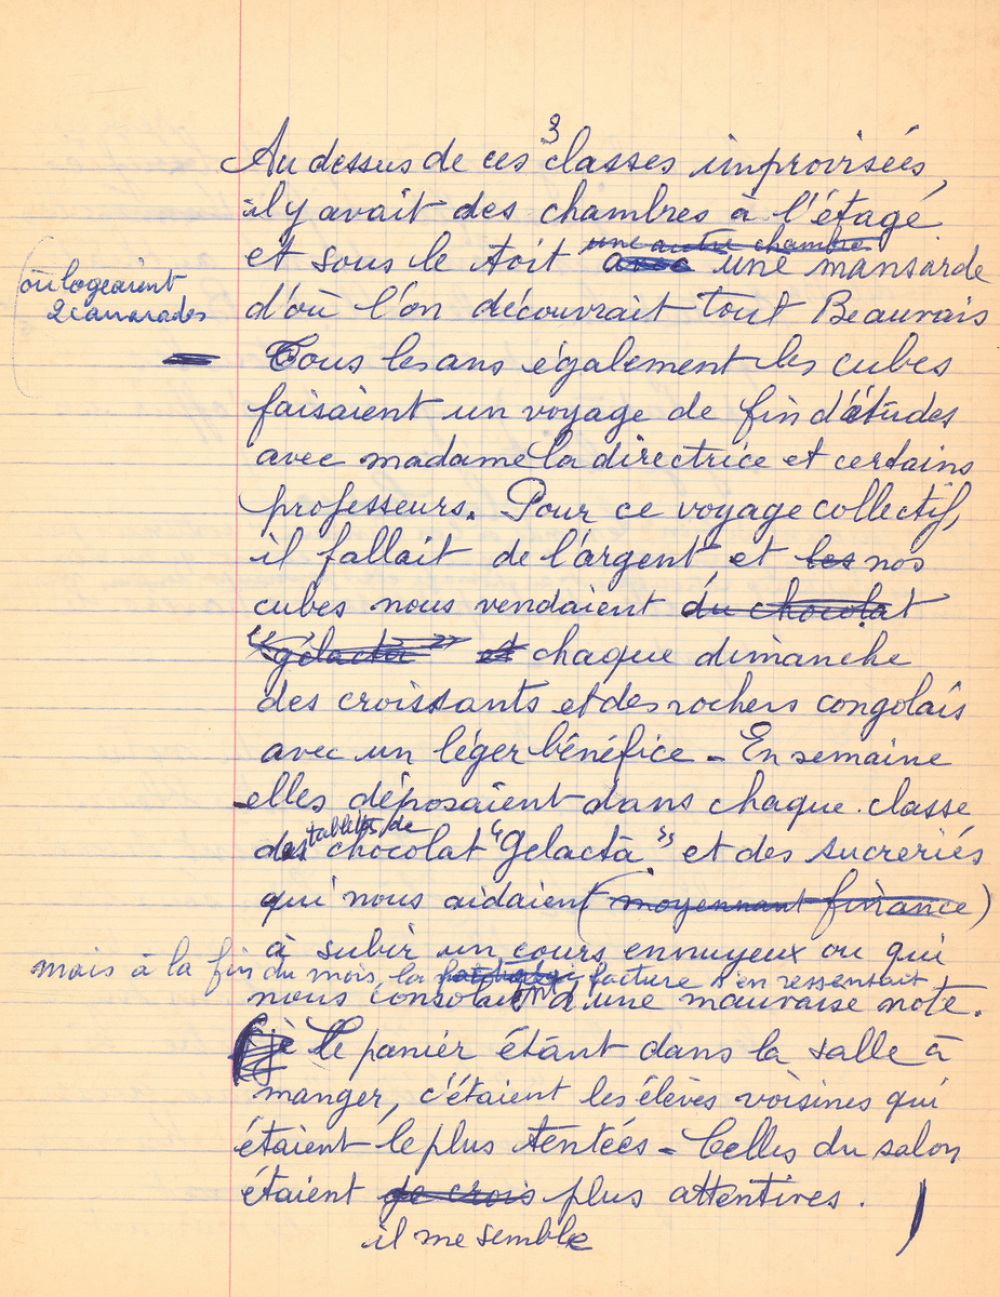 3
Au dessus de ces classes improvisées,
il y avait des chambres à l'étage
une autre chambre
et sous le toit avec une mansarde
où logeaient
2 camarades
d'où l'on découvrait tout Beauvais
Tous les ans également les cubes
faisaient un voyage de fin d'études
avec madame la directrice et certains
professeurs. Pour ce voyage collectif,
il fallait de l'argent et les nos
cubes nous vendaient du chocolat
"gélacta" et chaque dimanche
des croissants et des rochers congolais
avec un léger bénéfice - En semaine
elles déposaient dans chaque classe
tablettes de
des chocolat "Gelacta" et des sucreries
qui nous aidaient (moyennant finance)
à subir un cours ennuyeux ou qui
mais à la fin du mois, la facture s'en ressentait
nous consolait d'une mauvaise note.
Le panier étant dans la salle à
manger, c'étaient les élèves voisines qui
étaient le plus tentées - Celles du salon
étaient je crois plus attentives.
il me semble